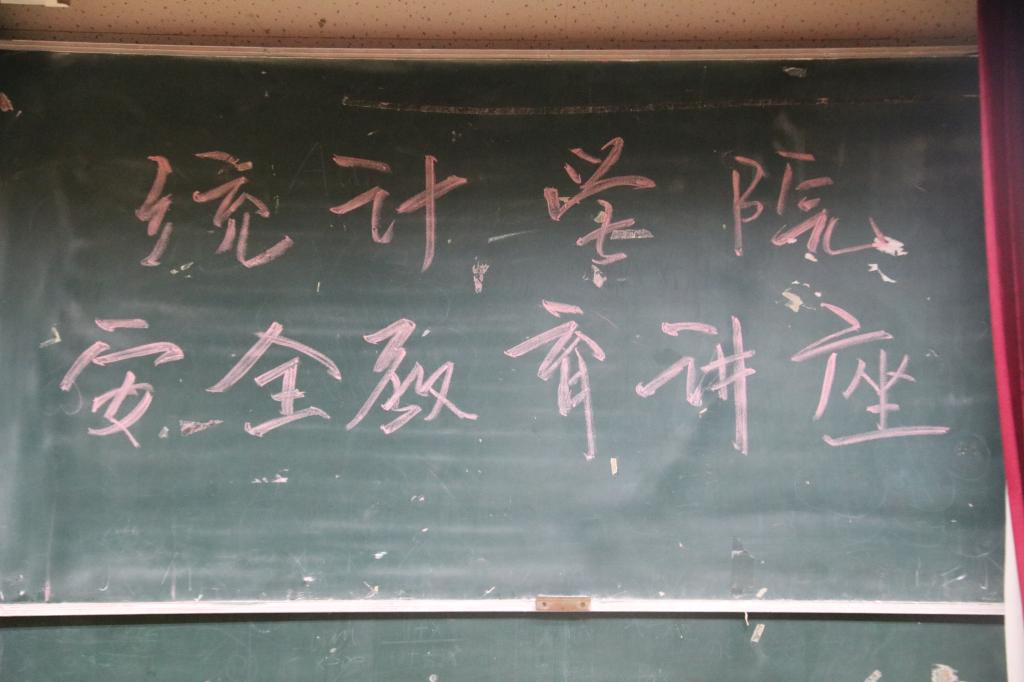 统计学院
安全教育讲座